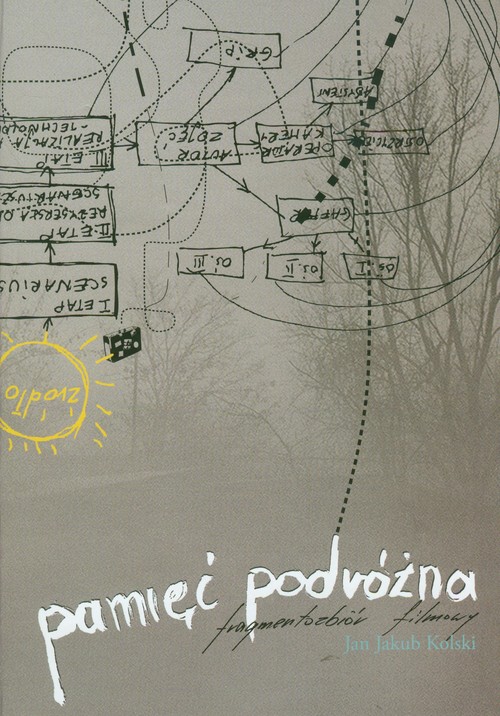 GRIP
ASYSTENT
III ETAP
REALIZACJA
AUTOR
ZDJĘĆ
OPERATOR
KAMERY
OSTRZYCIEL
II ETAP
GAFFER
OŚ. III
OŚ. II
OŚ. I
I ETAP
SCENARIUSZ
źródło
pamięć podróżna
fragmentozbiór filmowy
Jan Jakub Kolski